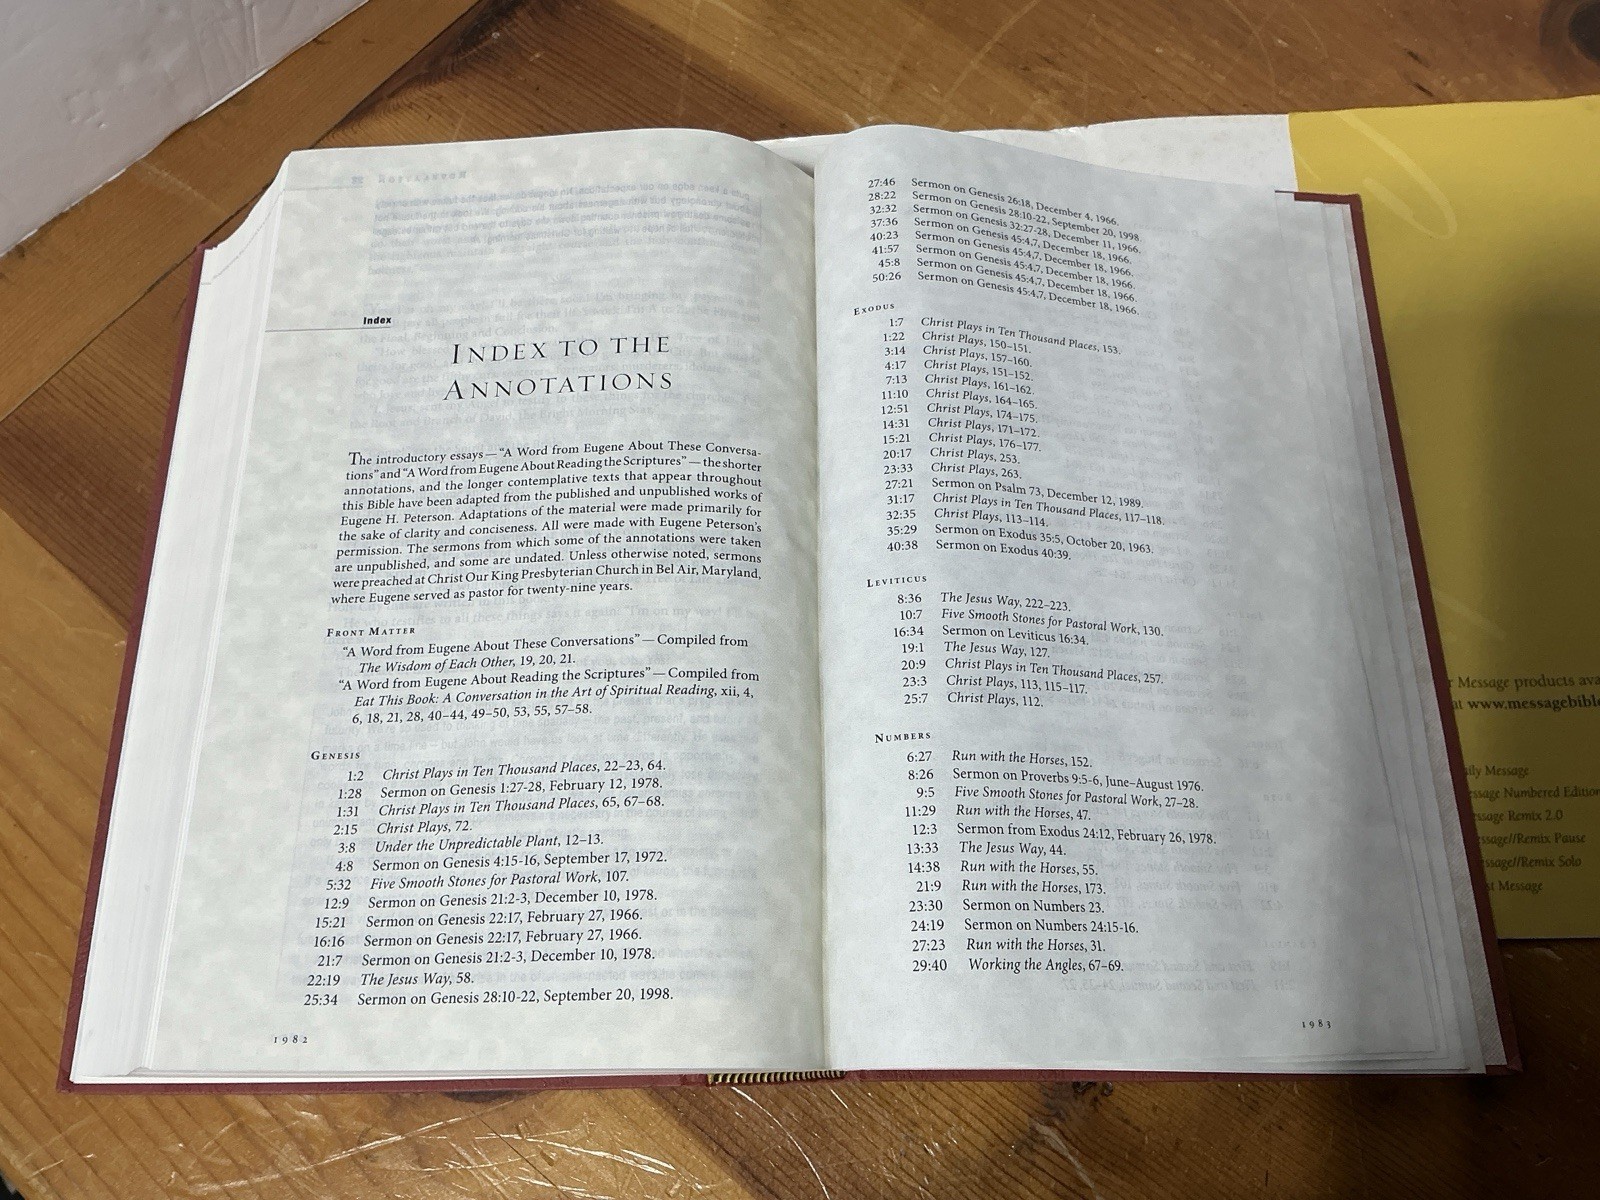 Index
INDEX TO THE
ANNOTATIONS
The introductory essays — “A Word from Eugene About These Conversa-
tions” and “A Word from Eugene About Reading the Scriptures” — the shorter
annotations, and the longer contemplative texts that appear throughout
this Bible have been adapted from the published and unpublished works of
Eugene H. Peterson. Adaptations of the material were made primarily for
the sake of clarity and conciseness. All were made with Eugene Peterson’s
permission. The sermons from which some of the annotations were taken
are unpublished, and some are undated. Unless otherwise noted, sermons
were preached at Christ Our King Presbyterian Church in Bel Air, Maryland,
where Eugene served as pastor for twenty-nine years.
FRONT MATTER
“A Word from Eugene About These Conversations” — Compiled from
The Wisdom of Each Other, 19, 20, 21.
“A Word from Eugene About Reading the Scriptures” — Compiled from
Eat This Book: A Conversation in the Art of Spiritual Reading, xii, 4,
6, 18, 21, 28, 40–44, 49–50, 53, 55, 57–58.
GENESIS
1:2 Christ Plays in Ten Thousand Places, 22–23, 64.
1:28 Sermon on Genesis 1:27-28, February 12, 1978.
1:31 Christ Plays in Ten Thousand Places, 65, 67–68.
2:15 Christ Plays, 72.
3:8 Under the Unpredictable Plant, 12–13.
4:8 Sermon on Genesis 4:15-16, September 17, 1972.
5:32 Five Smooth Stones for Pastoral Work, 107.
12:9 Sermon on Genesis 21:2-3, December 10, 1978.
15:21 Sermon on Genesis 22:17, February 27, 1966.
16:16 Sermon on Genesis 22:17, February 27, 1966.
21:7 Sermon on Genesis 21:2-3, December 10, 1978.
22:19 The Jesus Way, 58.
25:34 Sermon on Genesis 28:10-22, September 20, 1998.
1982
27:46 Sermon on Genesis 26:18, December 4, 1966.
28:22 Sermon on Genesis 28:10-22, September 20, 1998.
32:32 Sermon on Genesis 32:27-28, December 11, 1966.
37:36 Sermon on Genesis 45:4,7, December 18, 1966.
40:23 Sermon on Genesis 45:4,7, December 18, 1966.
41:57 Sermon on Genesis 45:4,7, December 18, 1966.
45:8 Sermon on Genesis 45:4,7, December 18, 1966.
50:26 Sermon on Genesis 45:4,7, December 18, 1966.
EXODUS
1:7 Christ Plays in Ten Thousand Places, 153.
1:22 Christ Plays, 150–151.
3:14 Christ Plays, 157–160.
4:17 Christ Plays, 151–152.
7:13 Christ Plays, 161–162.
11:10 Christ Plays, 164–165.
12:51 Christ Plays, 174–175.
14:31 Christ Plays, 171–172.
15:21 Christ Plays, 176–177.
20:17 Christ Plays, 253.
23:33 Christ Plays, 263.
27:21 Sermon on Psalm 73, December 12, 1989.
31:17 Christ Plays in Ten Thousand Places, 117–118.
32:35 Christ Plays, 113–114.
35:29 Sermon on Exodus 35:5, October 20, 1963.
40:38 Sermon on Exodus 40:39.
LEVITICUS
8:36 The Jesus Way, 222–223.
10:7 Five Smooth Stones for Pastoral Work, 130.
16:34 Sermon on Leviticus 16:34.
19:1 The Jesus Way, 127.
20:9 Christ Plays in Ten Thousand Places, 257.
23:3 Christ Plays, 113, 115–117.
25:7 Christ Plays, 112.
NUMBERS
6:27 Run with the Horses, 152.
8:26 Sermon on Proverbs 9:5-6, June–August 1976.
9:5 Five Smooth Stones for Pastoral Work, 27–28.
11:29 Run with the Horses, 47.
12:3 Sermon from Exodus 24:12, February 26, 1978.
13:33 The Jesus Way, 44.
14:38 Run with the Horses, 55.
21:9 Run with the Horses, 173.
23:30 Sermon on Numbers 23.
24:19 Sermon on Numbers 24:15-16.
27:23 Run with the Horses, 31.
29:40 Working the Angles, 67–69.
1983
Message products
www.messagebible
Message
Numbered Edition
Remix 2.0
Remix Pause
Remix Solo
Message